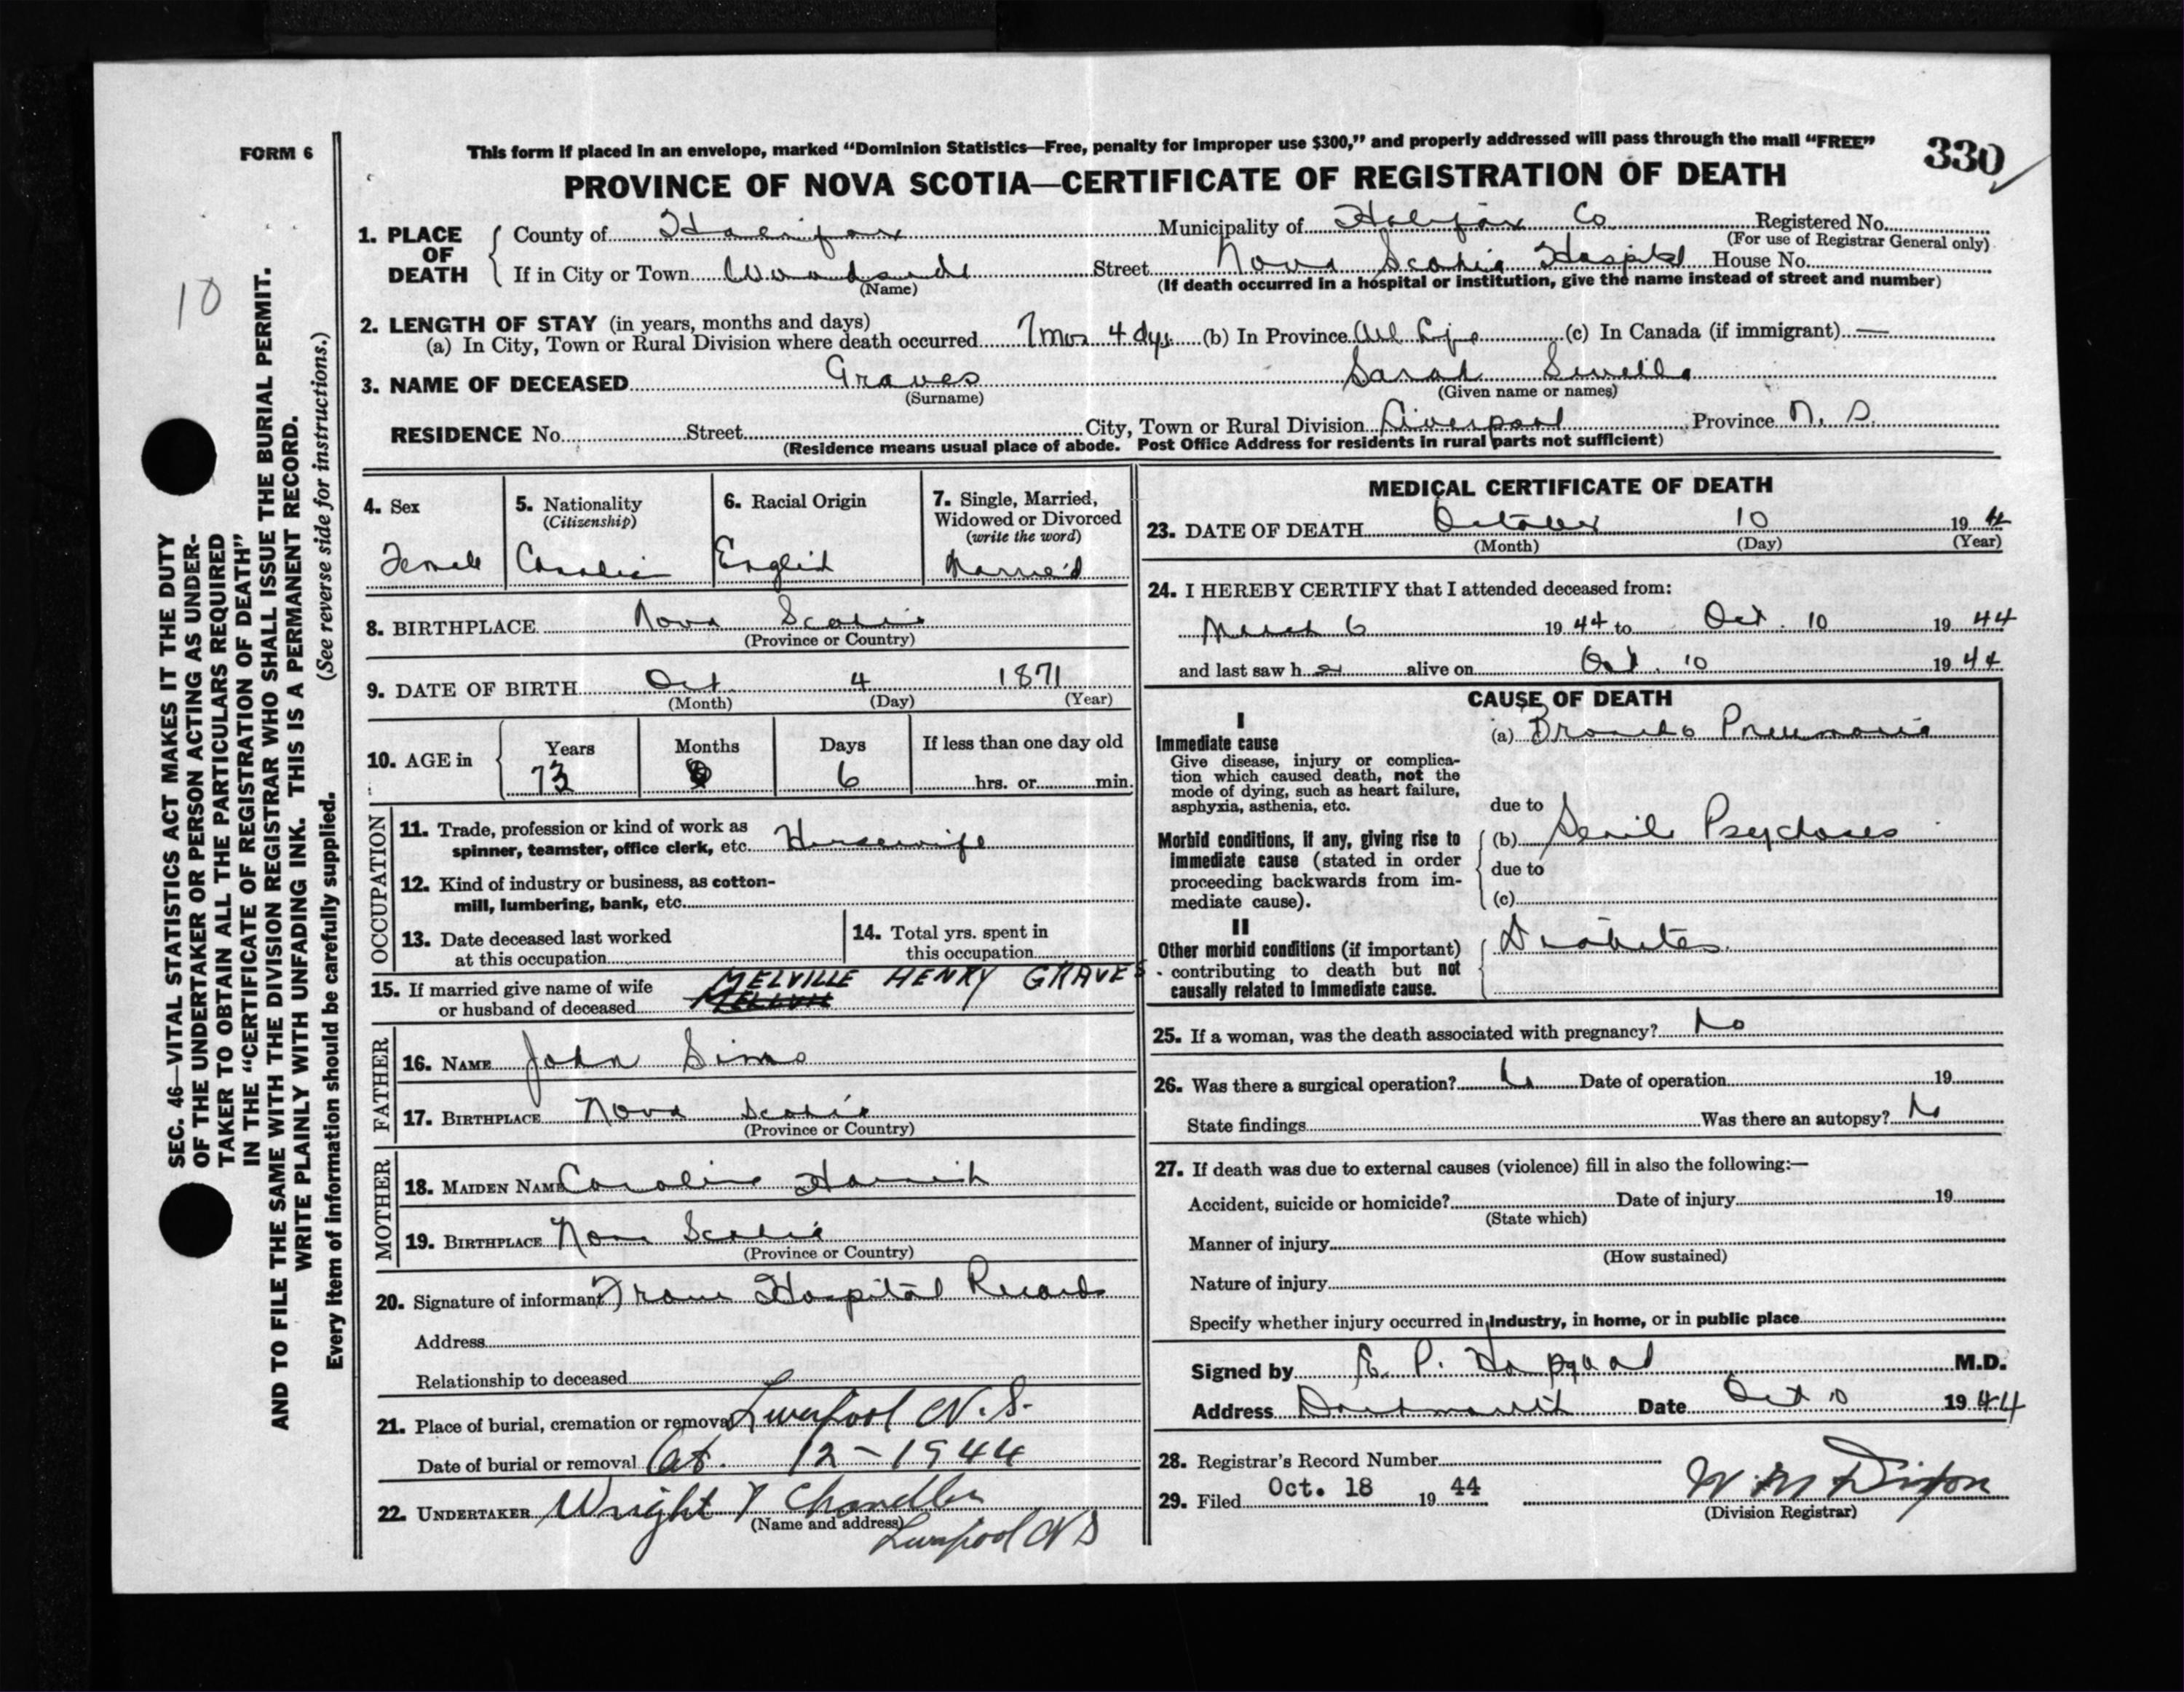 FORM 6
This form if placed in an envelope, marked “Dominion Statistics—Free, penalty for improper use $300,” and properly addressed will pass through the mail “FREE”
330
PROVINCE OF NOVA SCOTIA—CERTIFICATE OF REGISTRATION OF DEATH
10
SEC. 46—VITAL STATISTICS ACT MAKES IT THE DUTY
OF THE UNDERTAKER OR PERSON ACTING AS UNDER-
TAKER TO OBTAIN ALL THE PARTICULARS REQUIRED
IN THE “CERTIFICATE OF REGISTRATION OF DEATH”
AND TO FILE THE SAME WITH THE DIVISION REGISTRAR WHO SHALL ISSUE THE BURIAL PERMIT.
WRITE PLAINLY WITH UNFADING INK. THIS IS A PERMANENT RECORD.
Every item of information should be carefully supplied. (See reverse side for instructions.)
1. PLACE OF DEATH
County of Halifax Municipality of Halifax Co Registered No.
(For use of Registrar General only)
If in City or Town Woodside Street Nova Scotia Hospital House No.
(Name) (If death occurred in a hospital or institution, give the name instead of street and number)
2. LENGTH OF STAY (in years, months and days)
(a) In City, Town or Rural Division where death occurred 7 mos 4 dys (b) In Province All Life (c) In Canada (if immigrant) —
3. NAME OF DECEASED Graves Sarah
(Surname) (Given name or names)
RESIDENCE No. Street City, Town or Rural Division Liverpool Province N. S.
(Residence means usual place of abode. Post Office Address for residents in rural parts not sufficient)
4. Sex 5. Nationality (Citizenship) 6. Racial Origin 7. Single, Married, Widowed or Divorced (write the word)
Female Canadian English Married
8. BIRTHPLACE Nova Scotia
(Province or Country)
9. DATE OF BIRTH Oct 4 1871
(Month) (Day) (Year)
10. AGE in Years Months Days If less than one day old
73 6 hrs. or min.
OCCUPATION
11. Trade, profession or kind of work as
spinner, teamster, office clerk, etc. Housewife
12. Kind of industry or business, as cotton-
mill, lumbering, bank, etc.
13. Date deceased last worked
at this occupation
14. Total yrs. spent in
this occupation
15. If married give name of wife
or husband of deceased MELVILLE HENRY GRAVES
FATHER
16. NAME John Sims
17. BIRTHPLACE Nova Scotia
(Province or Country)
MOTHER
18. MAIDEN NAME Caroline Harnish
19. BIRTHPLACE Nova Scotia
(Province or Country)
20. Signature of informant From Hospital Records
Address
Relationship to deceased
21. Place of burial, cremation or removal Liverpool N.S.
Date of burial or removal Oct. 12-1944
22. UNDERTAKER Wright & Chandler
(Name and address)
Liverpool N S
MEDICAL CERTIFICATE OF DEATH
23. DATE OF DEATH October 10 19 44
(Month) (Day) (Year)
24. I HEREBY CERTIFY that I attended deceased from:
March 6 19 44 to Oct. 10 19 44
and last saw h er alive on Oct. 10 19 44
CAUSE OF DEATH
I
Immediate cause
Give disease, injury or complica-
tion which caused death, not the
mode of dying, such as heart failure,
asphyxia, asthenia, etc.
(a) Broncho Pneumonia
due to
Morbid conditions, if any, giving rise to
immediate cause (stated in order
proceeding backwards from im-
mediate cause).
(b) Senile Psychoses
due to
(c)
II
Other morbid conditions (if important)
contributing to death but not
causally related to immediate cause.
Diabetes
25. If a woman, was the death associated with pregnancy? No
26. Was there a surgical operation? No Date of operation 19
State findings Was there an autopsy? No
27. If death was due to external causes (violence) fill in also the following:—
Accident, suicide or homicide? Date of injury 19
(State which)
Manner of injury
(How sustained)
Nature of injury
Specify whether injury occurred in industry, in home, or in public place
Signed by E. P. M.D.
Address Dartmouth Date Oct 10 19 44
28. Registrar's Record Number
29. Filed Oct. 18 19 44 W M Dixon
(Division Registrar)